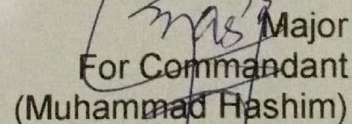 Major
For Commandant
(Muhammad Hashim)